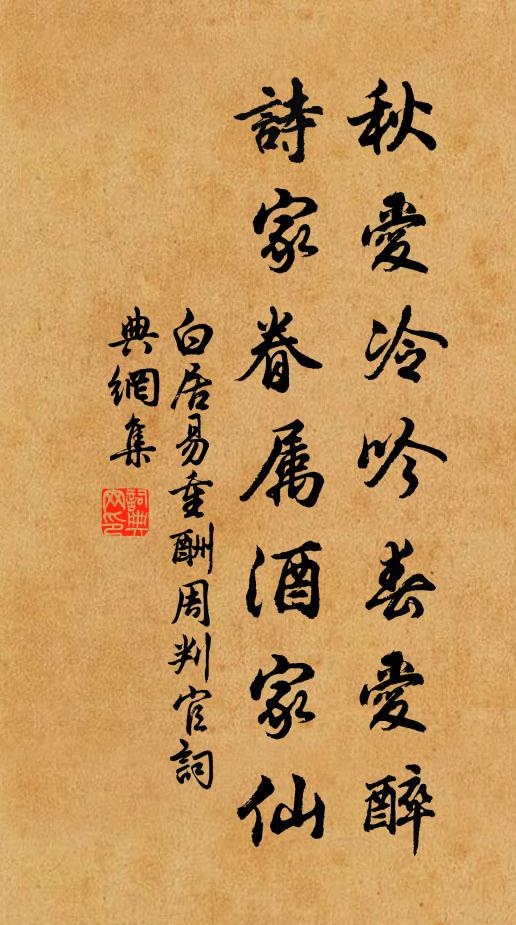 秋愛冷吟春愛醉
詩家眷属酒家仙
白居易重酬周判官詞
典網集
詞典
网印